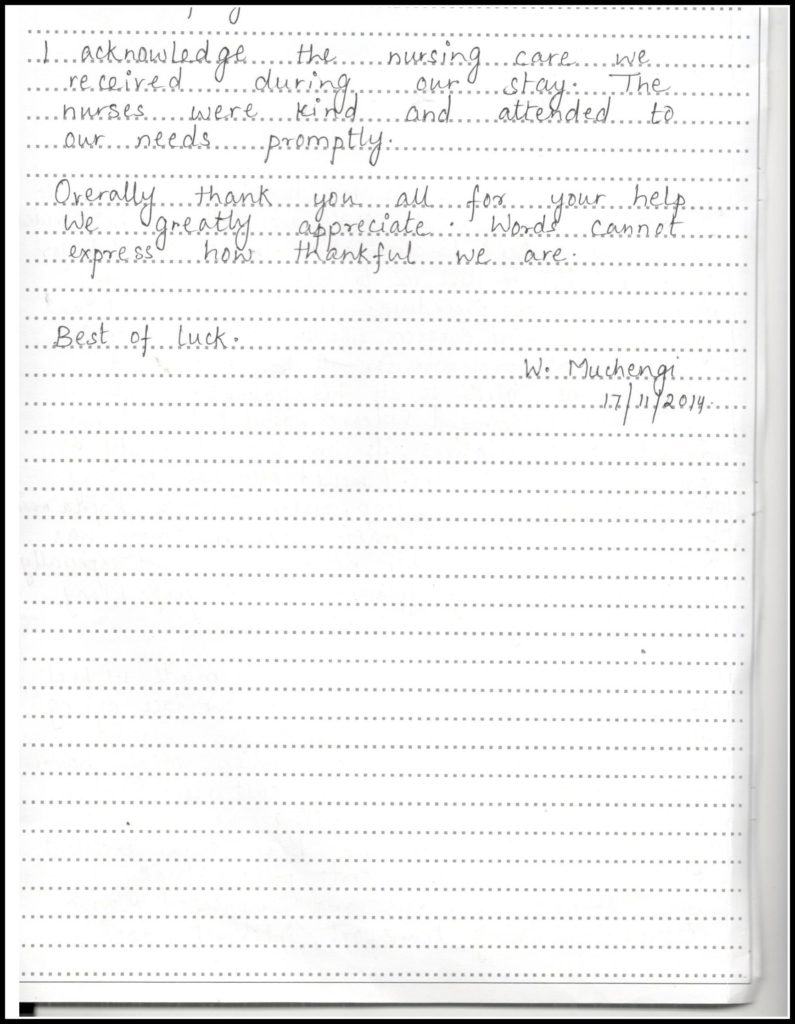 I acknowledge the nursing care we
received during our stay. The
nurses were kind and attended to
our needs promptly.
Overally thank you all for your help
We greatly appreciate. Words cannot
express how thankful we are.
Best of luck.
W. Muchengi
17/11/2014.